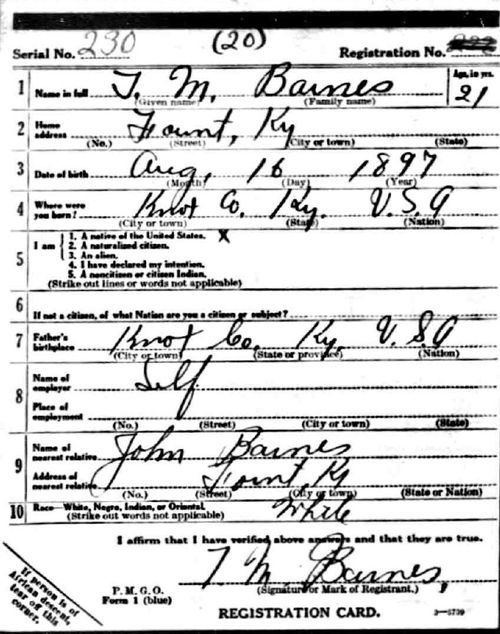 Serial No. 230 (20) Registration No.
1 Name in full T. M. Barnes Age, in yrs.
(Given name) (Family name) 21
2 Home address Fount, Ky
(No.) (Street) (City or town) (State)
3 Date of birth Aug, 16 1897
(Month) (Day) (Year)
4 Where were you born? Knox Co. Ky. U.S.A
(City or town) (State) (Nation)
5 I am
1. A native of the United States. X
2. A naturalized citizen.
3. An alien.
4. I have declared my intention.
5. A noncitizen or citizen Indian.
(Strike out lines or words not applicable)
6 If not a citizen, of what Nation are you a citizen or subject?
7 Father's birthplace Knox Co. Ky. U.S.A
(City or town) (State or province) (Nation)
8 Name of employer Self
Place of employment
(No.) (Street) (City or town) (State)
9 Name of nearest relative John Barnes
Address of nearest relative Fount, Ky
(No.) (Street) (City or town) (State or Nation)
10 Race—White, Negro, Indian, or Oriental. White
(Strike out words not applicable)
I affirm that I have verified above answers and that they are true.
T M Barnes,
P. M. G. O. (Signature or Mark of Registrant.)
Form 1 (blue)
REGISTRATION CARD. 3—5739
If person is of
African descent,
tear off this
corner.